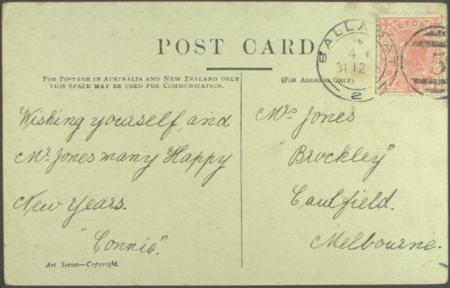 POST CARD.
FOR POSTAGE IN AUSTRALIA AND NEW ZEALAND ONLY
THIS SPACE MAY BE USED FOR COMMUNICATION.
(FOR ADDRESS ONLY)
BALLARAT
4
31 12
2
Wishing yourself, and
Mr. Jones many Happy
New Years.
"Connie".
Art Series—Copyright.
Mrs Jones
"Brockley"
Caulfield.
Melbourne.